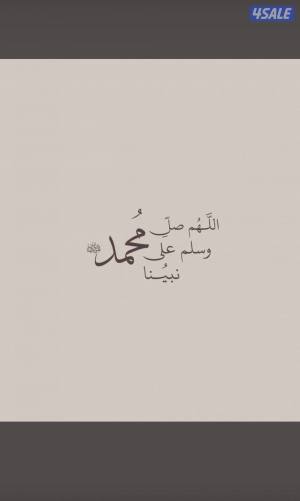 4SALE
اللَّهُم صلِّ
وسلم على مُحمد ﷺ
نبيُنا